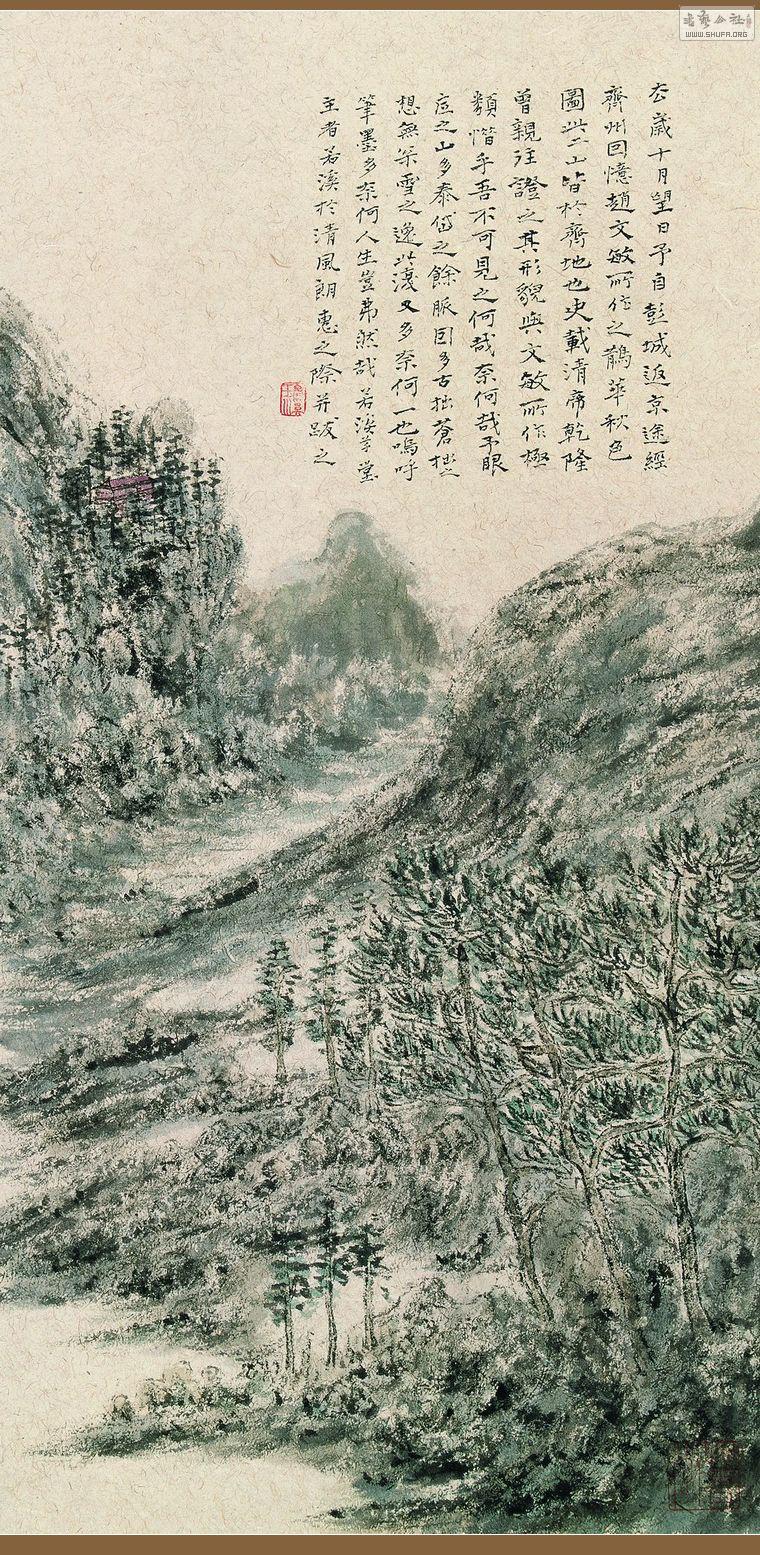 去歲十月望日予自彭城返京途經
齊州回憶趙文敏所作之鵲華秋色
圖此二山皆於齊地也史載清帝乾隆
曾親往證之其形貌與文敏所作極
類惜乎吾不可見之何哉奈何哉予眼
底之山多泰岱之餘脈固多古拙蒼拙
想無朵雪之逸此淺又多奈何一也嗚呼
筆墨多奈何人生豈弗然哉若溪草堂
主者若溪於清風朗惠之際并跋之
书艺公社
WWW.SHUFA.ORG